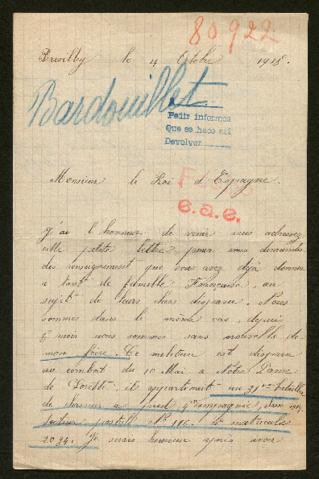 80922
le 4 Octobre 1915.
Bardouillet
Pedir informes
Que se hace así
Devolver
Monsieur le Roi d'Espagne.
e.a.e.
J'ai l'honneur de venir vous adresser
cette petite lettre pour vous demander
des renseignement que vous avez déjà donner
a tant de famille Française au
sujet de leurs chers disparu. Nous
sommes dans le même cas, depuis
5 mois nous sommes sans nouvelle de
mon frère. Ce malheur est disparu
au combat du 10 Mai a Notre Dame
de Lorette, il appartenait au
de a pied 4e compagnie,
secteur postale No 116. matricule
2034. Je serais heureux après avoir